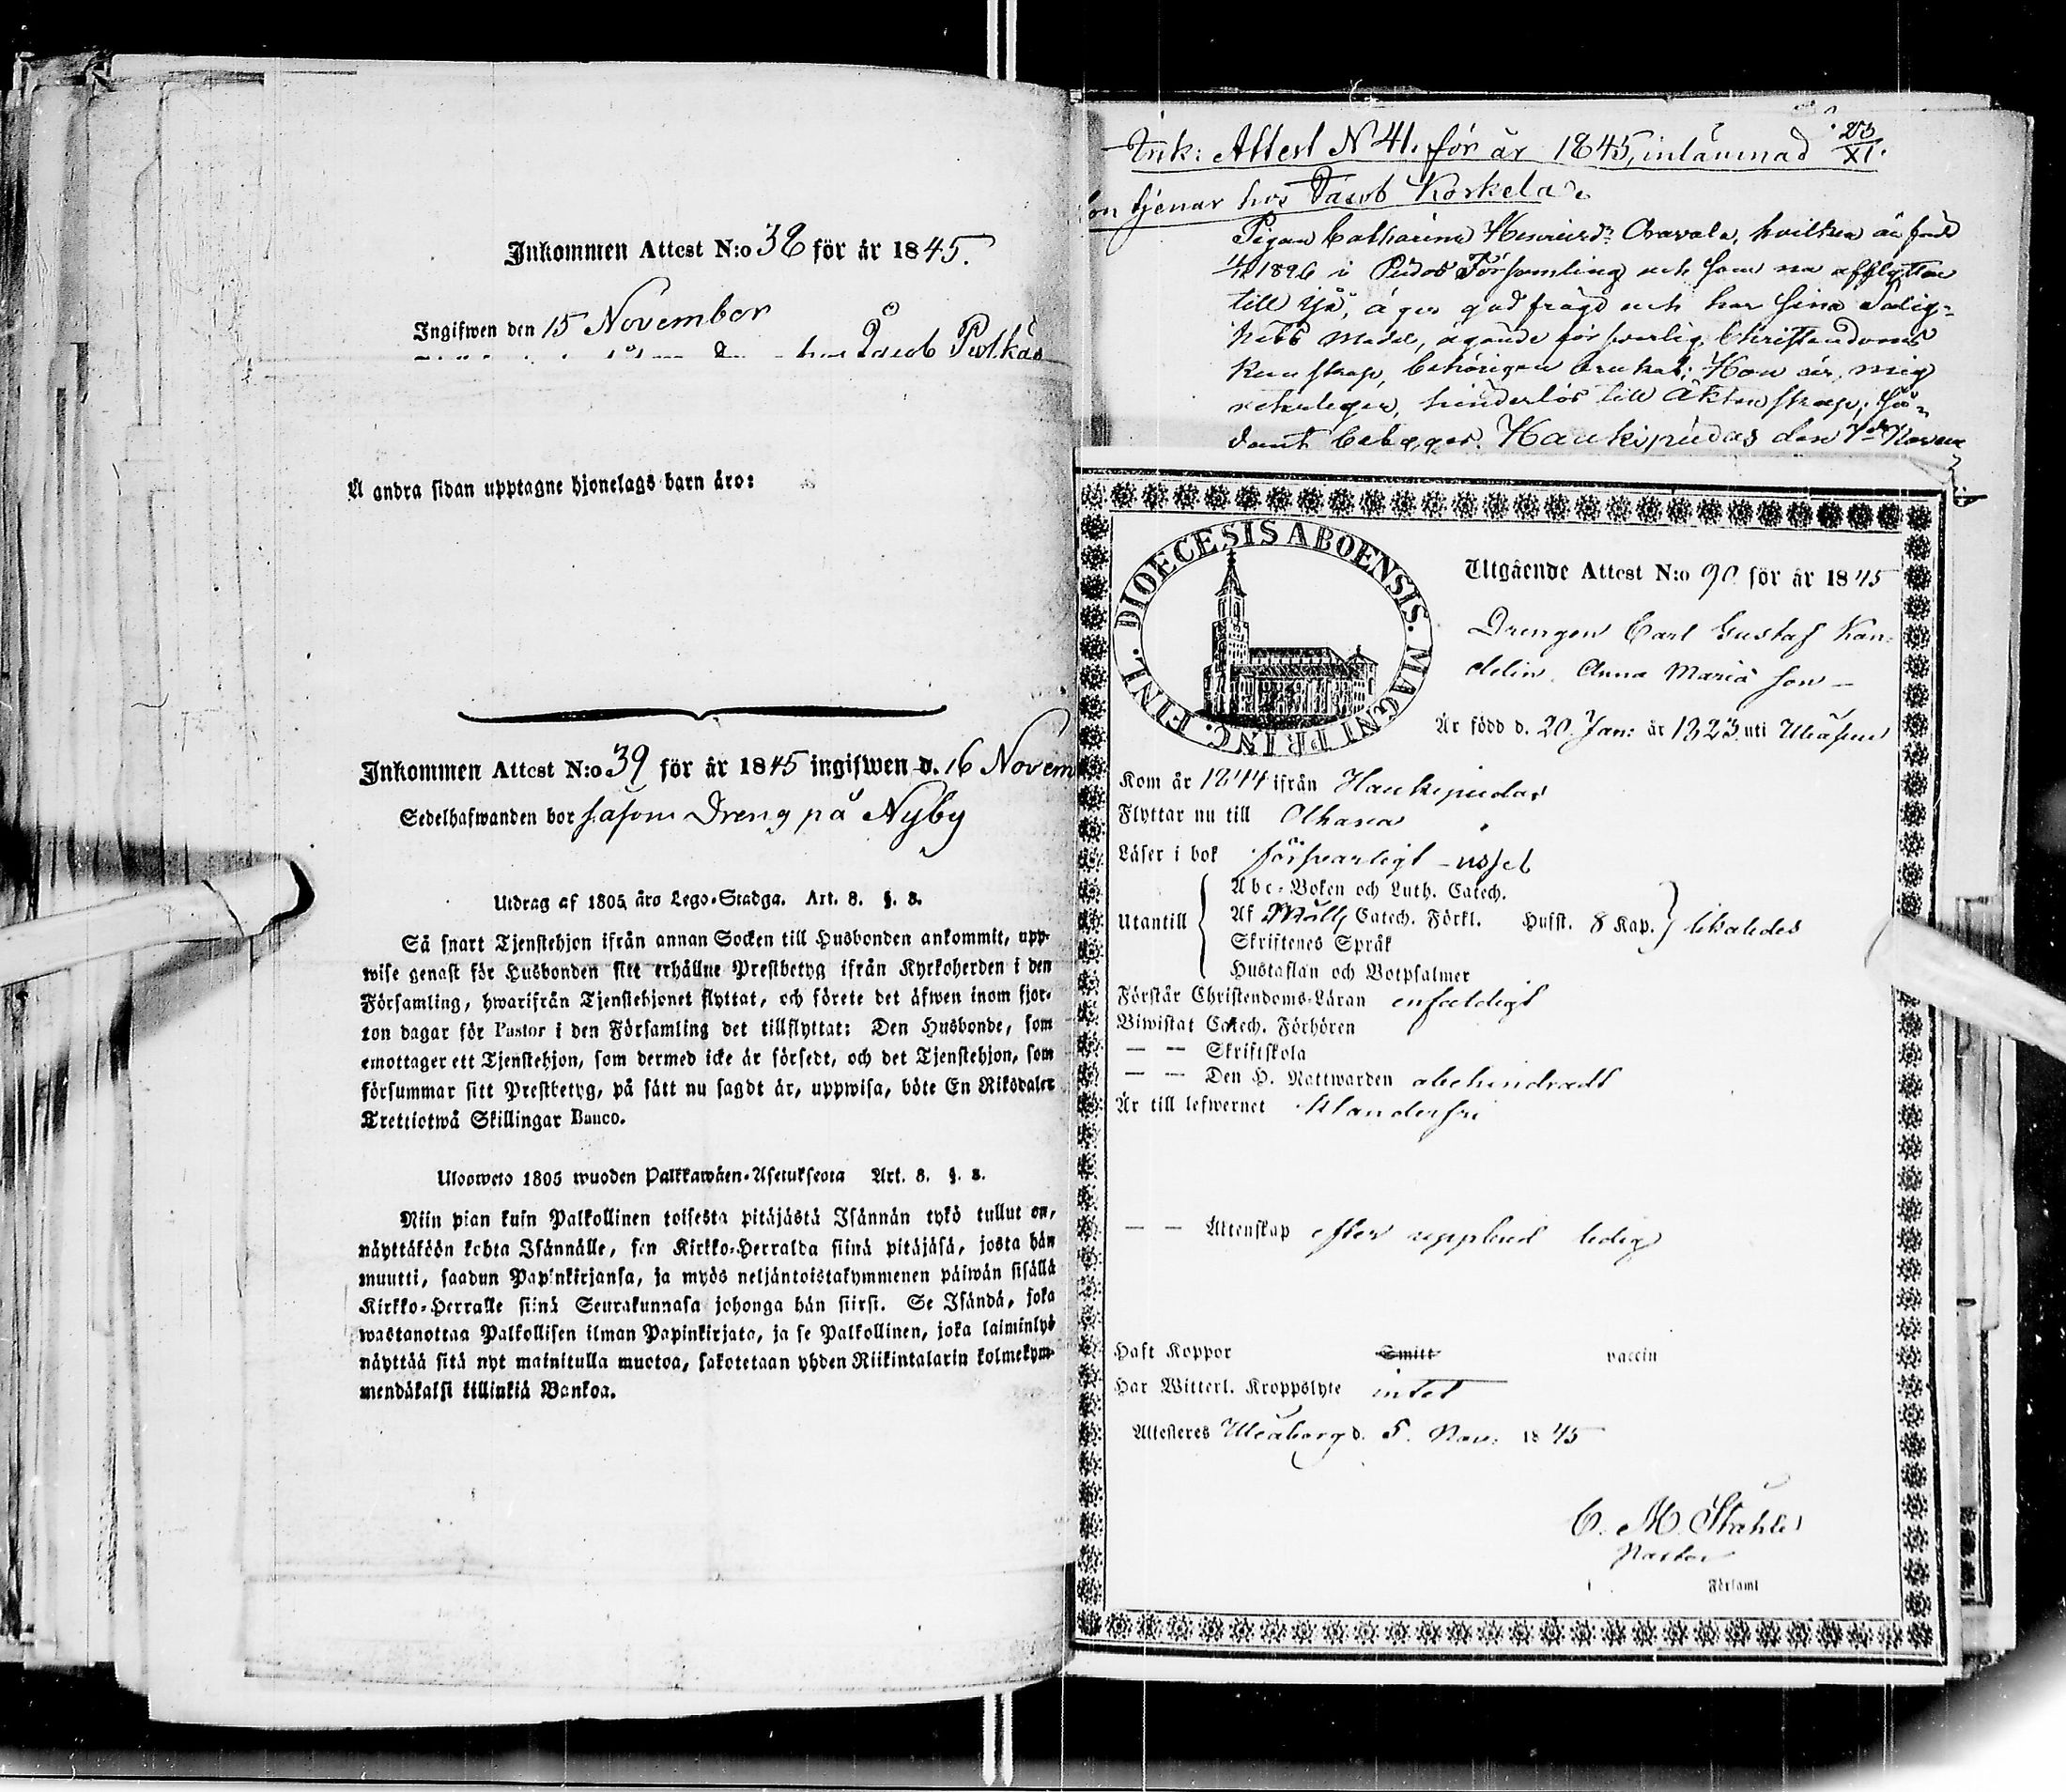 Inkommen Attest N:o 38 för år 1845.
Ingifwen den 15 November
hos Jacob
Å andra sidan upptagne hjonelags barn äro:
Inkommen Attest N:o 39 för år 1845 ingifwen d. 16 Novem
Sedelhafwanden bor såsom Dreng på Nyby
Utdrag af 1805 års Lego-Stadga. Art. 8. §. 8.
Så snart Tjenstehjon ifrån annan Socken till Husbonden ankommit, upp-
wise genast för Husbonden sitt erhållne Prestbetyg ifrån Kyrkoherden i den
Församling, hwarifrån Tjenstehjonet flyttat, och förete det äfwen inom fjor-
ton dagar för Pastor i den Församling det tillflyttat: Den Husbonde, som
emottager ett Tjenstehjon, som dermed icke är försedt, och det Tjenstehjon, som
försummar sitt Prestbetyg, på sätt nu sagdt är, uppwisa, böte En Riksdaler
Trettiotwå Skillingar Banco.
Ulosweto 1805 wuoden Palkkawäen-Asetuksesta Art. 8. §. 8.
Niin pian kuin Palkollinen toisesta pitäjästä Isännän tykö tullut on,
näyttäköön kohta Isännälle, sen Kirkko-Herralda siinä pitäjäsä, josta hän
muutti, saadun Papinkirjansa, ja myös neljäntoistakymmenen päiwän sisällä
Kirkko-Herralle siinä Seurakunnasa johonga hän siirsi. Se Isändä, joka
wastanottaa Palkollisen ilman Papinkirjata, ja se Palkollinen, joka laiminlyö
näyttää sitä nyt mainitulla muotoa, sakotetaan yhden Riikintalarin kolmekym-
mendäkaksi killinkiä Bankoa.
Ink: Attest N 41. för år 1845, inlämnad 23/XI.
on tjenar hos Jacob Korkela
Pigan Catharina Henricsdr Aravala, hvilken är född
1826 i Församling och som nu afflyttar
till Ijå, äger god frägd och har sina Salig-
hets Medel, ägande försvarlig Christendoms
kunskap, behörigen brukat; Hon är, mig
veterligen, hinderlös till Äktenskap, så-
dant betygar. Haukipudas den 7de Novem
Utgående Attest N:o 90 för år 1845
Drengen Carl Gustaf Kan-
delin Anna Maria son
Är född d. 20 Jan: år 1823 uti Uleåsuu
Kom år 1844 ifrån Haukipudas
Flyttar nu till Olhava
Läser i bok försvarligt
Utantill Abc-Boken och Luth. Catech.
Af Möll Catech. Förkl. Hufst. 8 Kap. likaledes
Skriftenes Språk
Hustaflan och Botpsalmer
Förstår Christendoms-Läran enfaldigt
Biwistat Catech. Förhören
— — Skriftskola
— — Den H. Nattwarden obehindradt
Är till lefwernet klanderfri
— — Äktenskap efter uppbud ledig
Haft Koppor Smitt vaccin
Har Witterl. Kroppslyte intet
Attesteres Uleåborg d. 5. Nov: 1845
C. M. Ståhle
Pastor
Församl
DIOECESIS ABOENSIS. MAGNI PRINC. FINL.